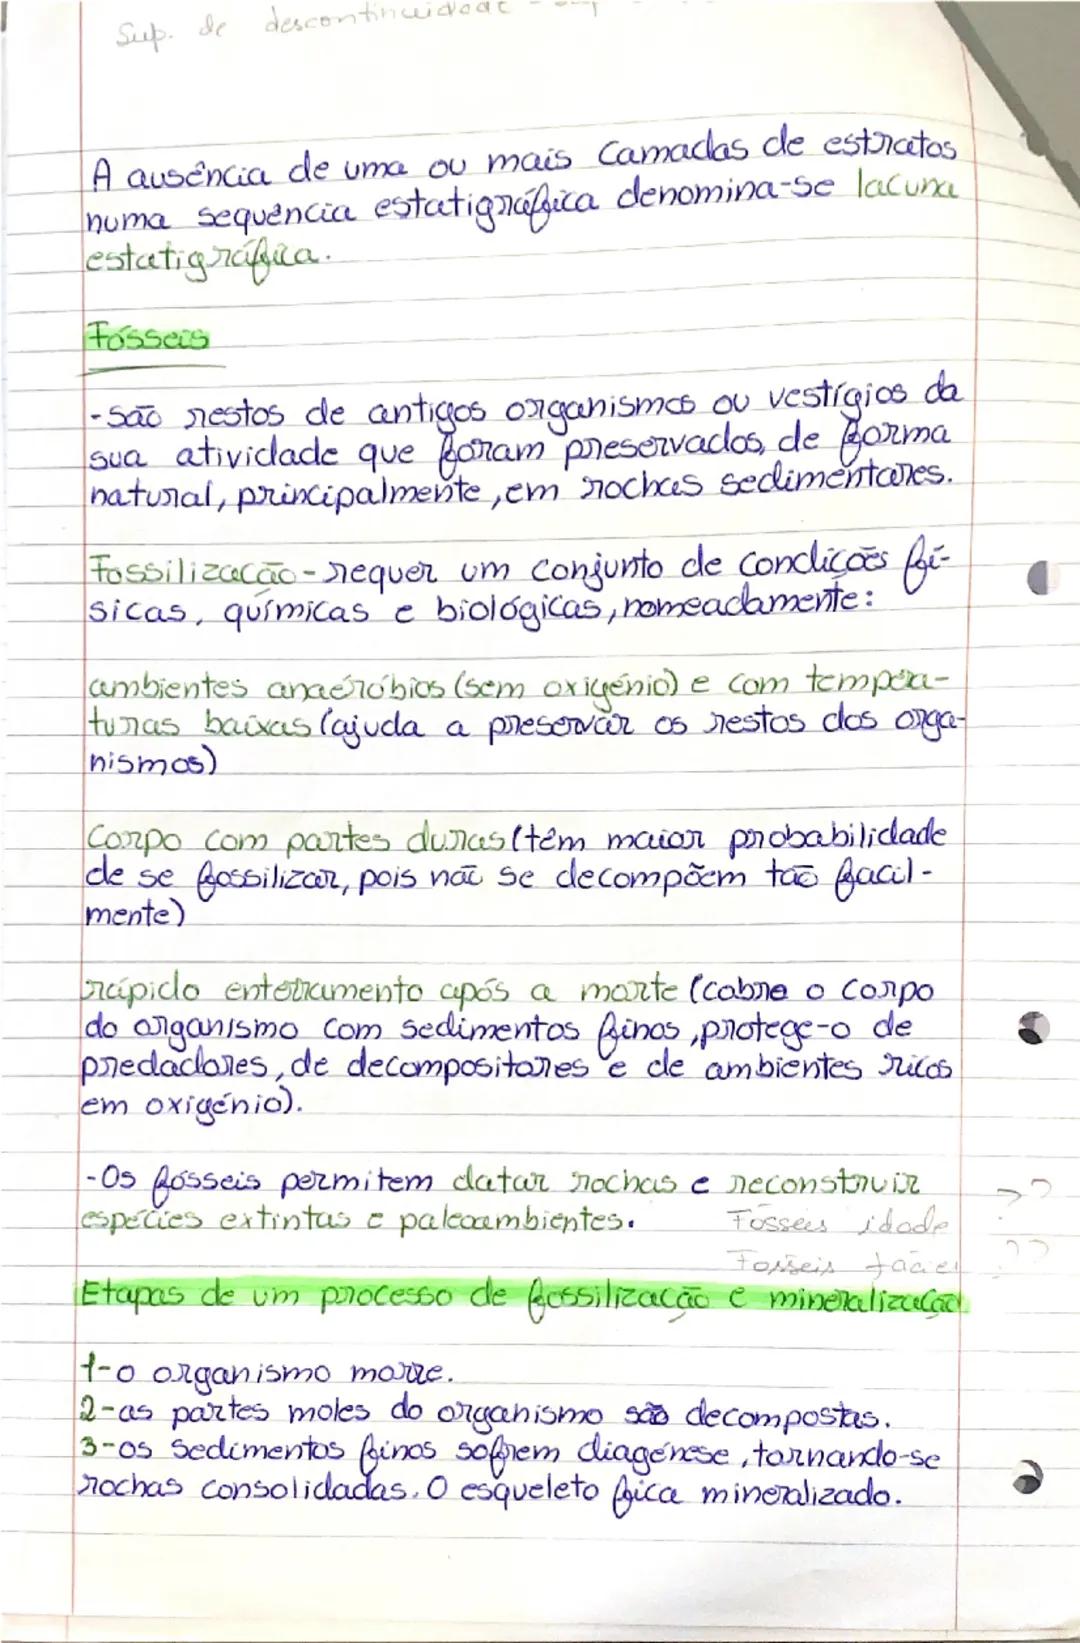 Sup. de descontinuidade
A ausência de uma ou mais camadas de estratos
numa sequência estatigráfica denomina-se lacuna
estatigráfica.
Fósseis
-São restos de antigos organismos ou vestígios da
sua atividade que foram preservados, de forma
natural, principalmente, em rochas sedimentares.
Fossilização - requer um conjunto de condições fí-
sicas, químicas e biológicas, nomeadamente:
ambientes anaeróbios (sem oxigénio) e com tempera-
turas baixas (ajuda a preservar os restos dos orga-
nismos)
Corpo com partes duras (têm maior probabilidade
de se fossilizar, pois não se decompõem tão facil-
mente)
rápido enterramento após a morte (cobre o corpo
do organismo com sedimentos finos, protege-o de
predadores, de decompositores e de ambientes ricos
em oxigénio).
-Os fósseis permitem datar rochas e reconstruir ??
espécies extintas e paleoambientes. Fósseis idade
Fósseis fácies ??
Etapas de um processo de fossilização e mineralização
1-o organismo morre.
2-as partes moles do organismo são decompostas.
3-os sedimentos finos sofrem diagénese, tornando-se
rochas consolidadas. O esqueleto fica mineralizado.